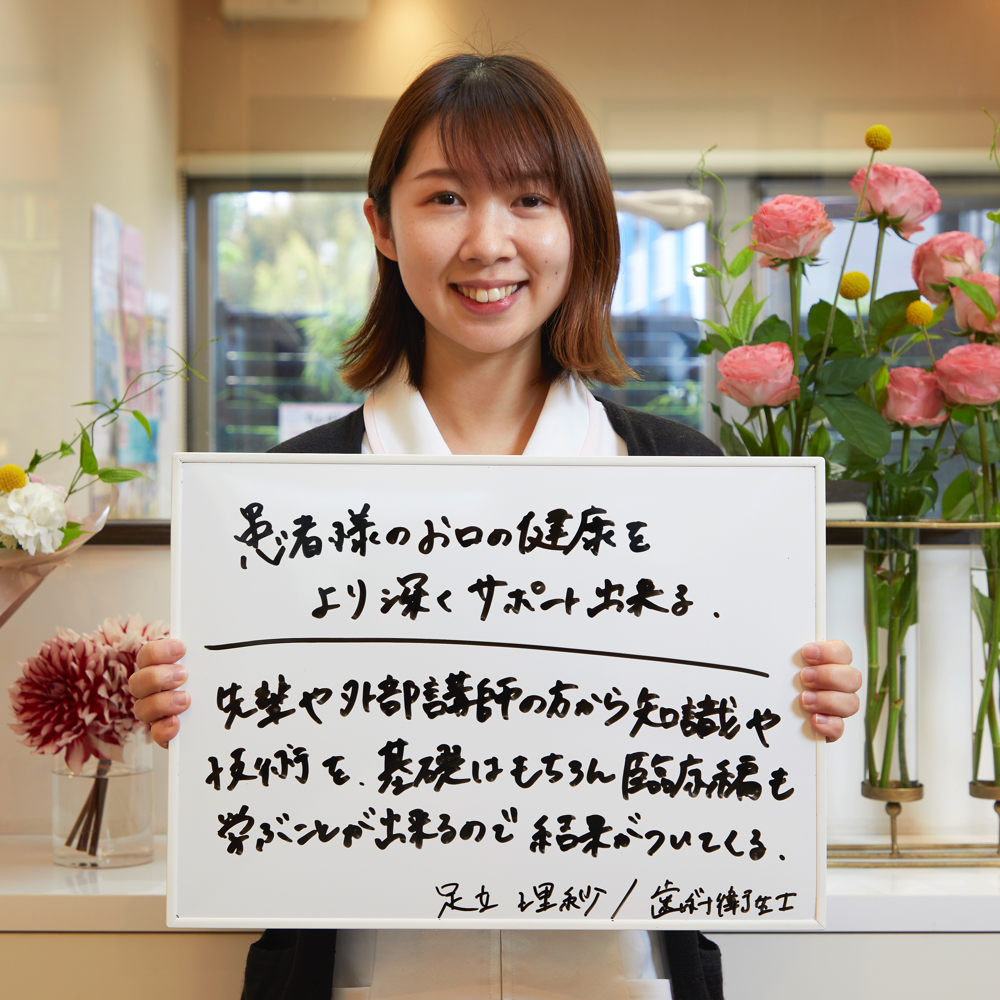 患者様のお口の健康を
より深くサポート出来る.
先輩や外部講師の方から知識や
技術を、基礎はもちろん臨床編も
学ぶことが出来るので結果がついてくる.
足立 理紗/歯科衛生士